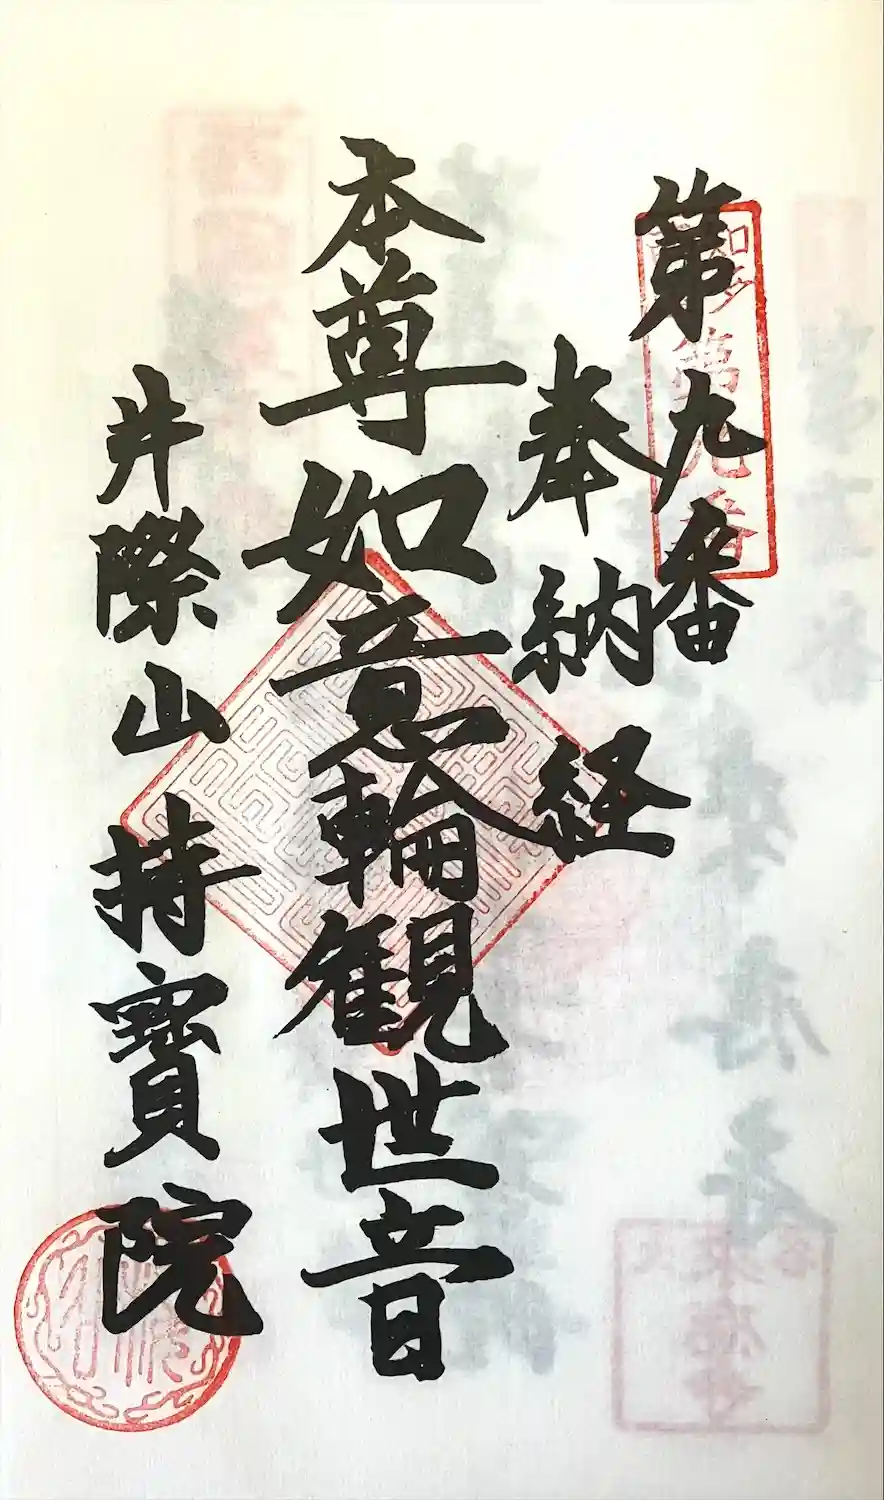 第九番
奉納経
本尊如意輪観世音
井際山持寳院
知多
第九番